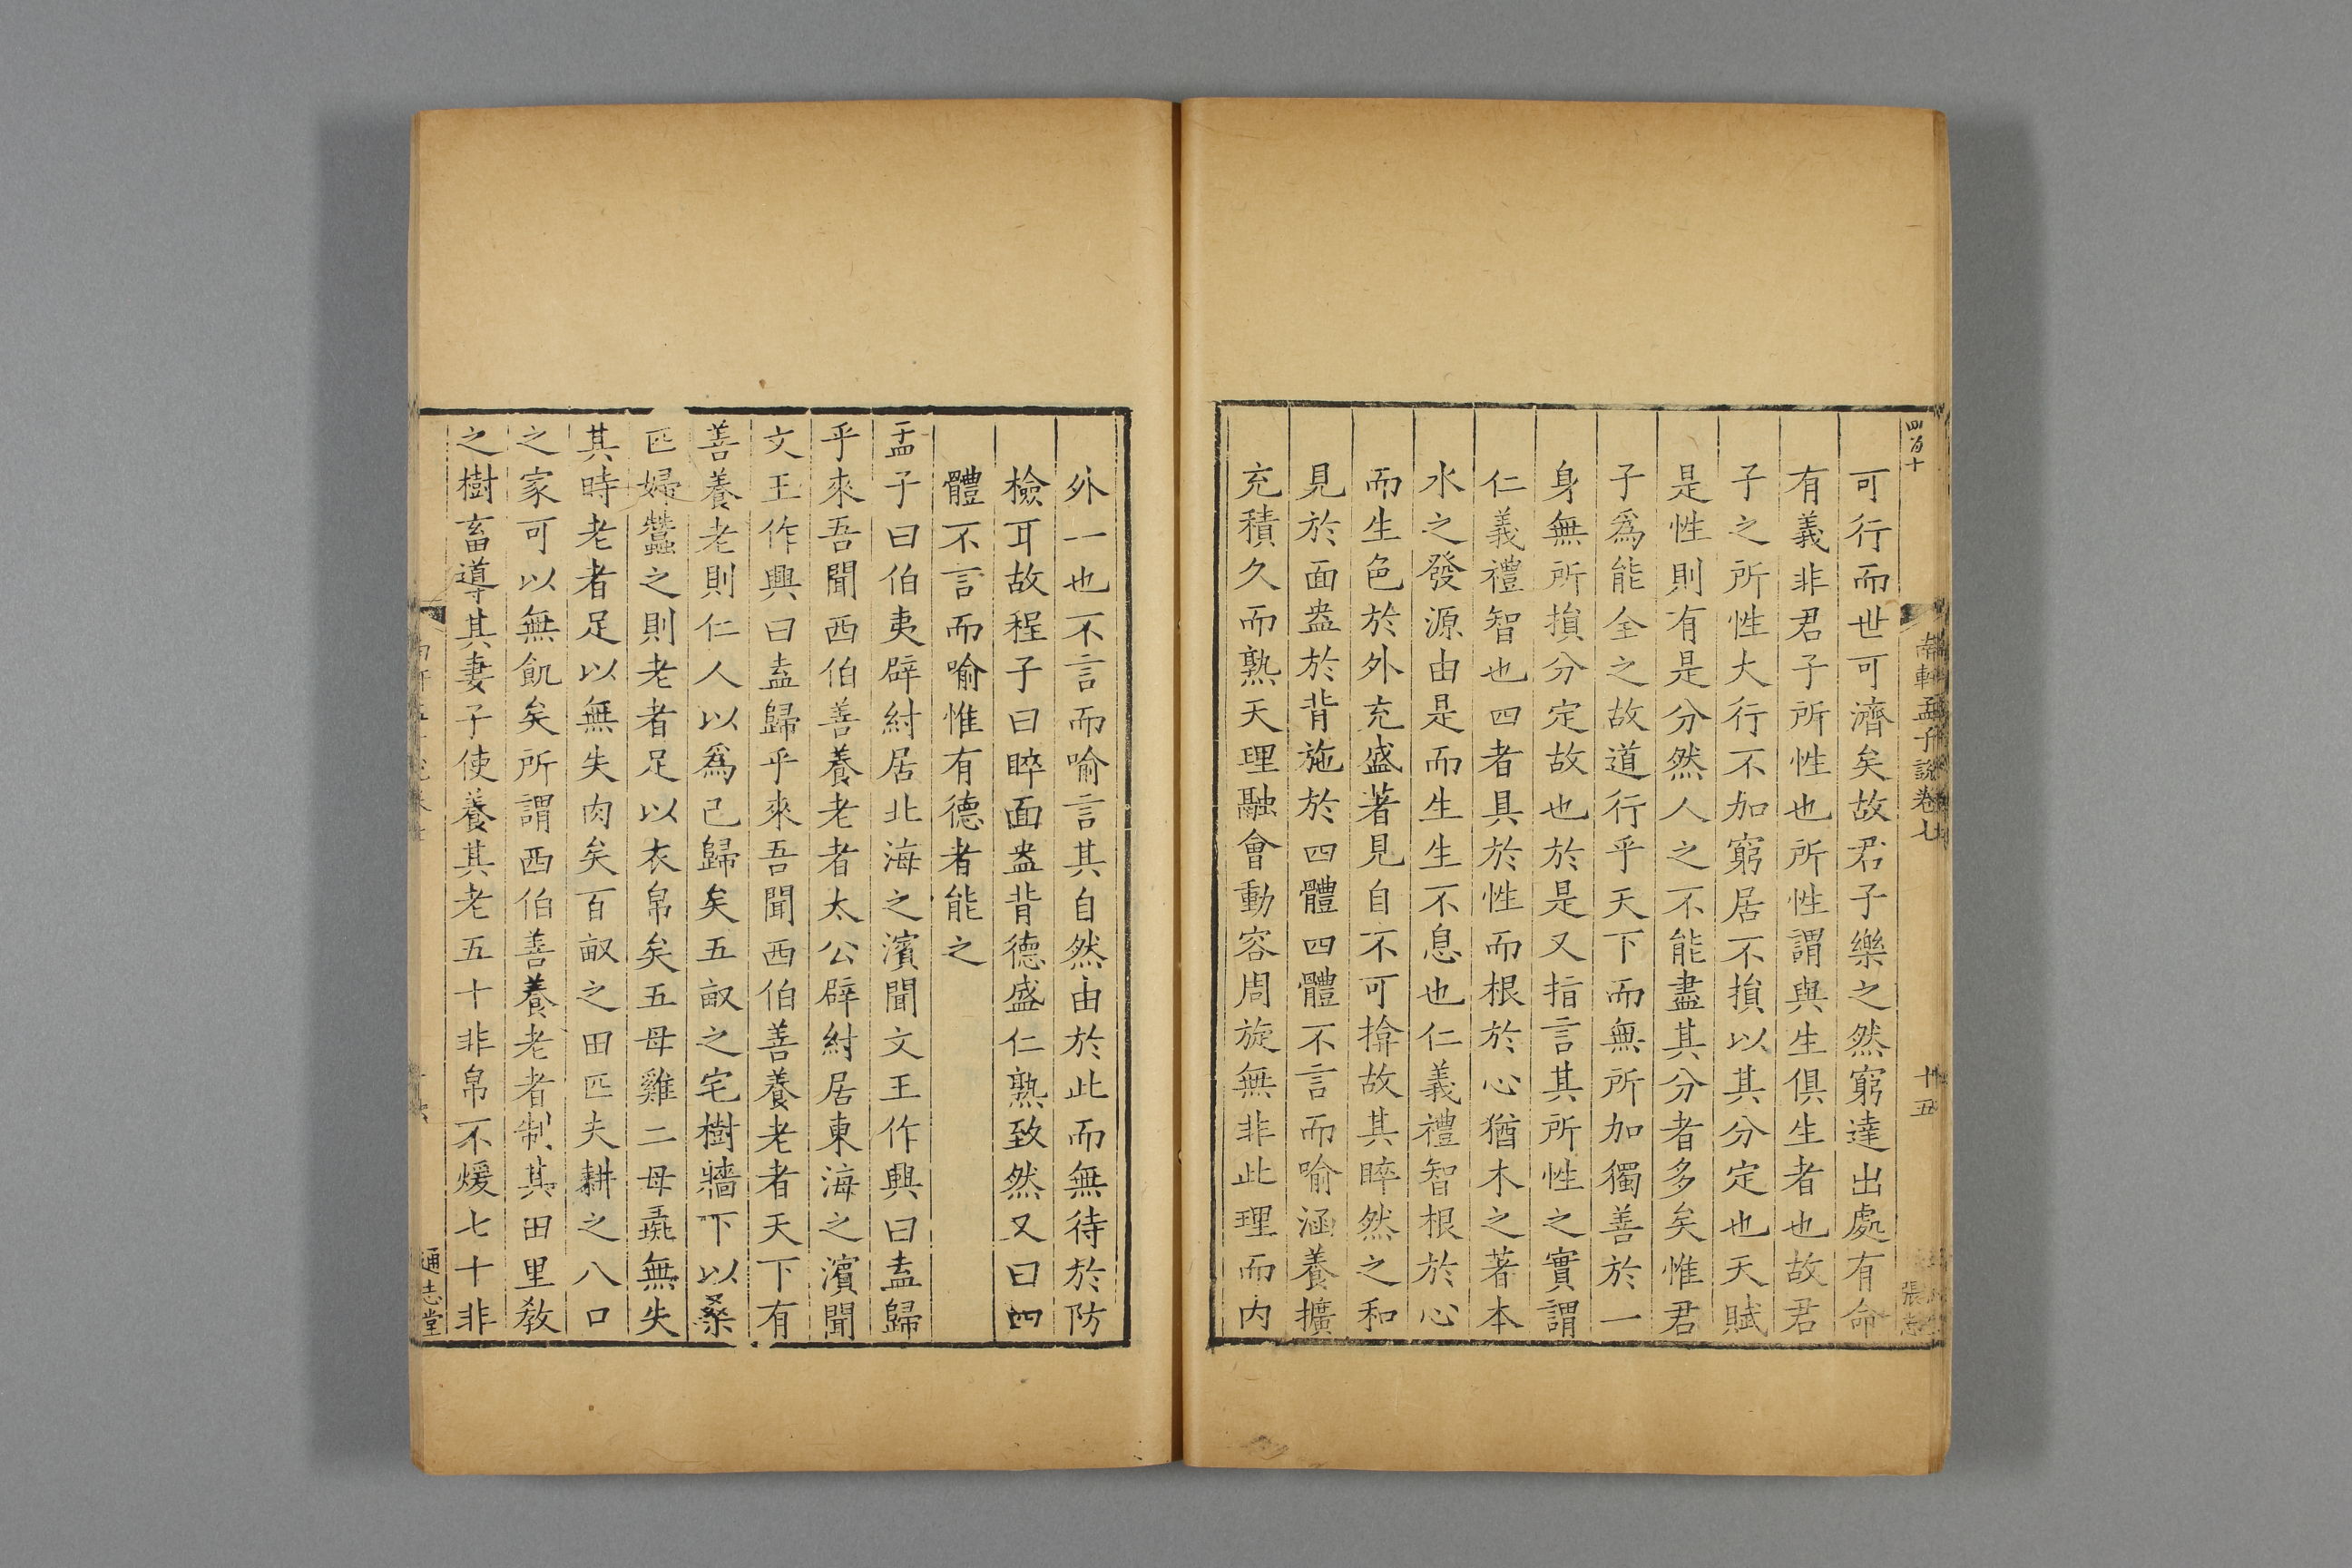 四百十
南軒孟子說卷七
十五
可行而世可濟矣故君子樂之然窮達出處有命
有義非君子所性也所性謂與生俱生者也故君
子之所性大行不加窮居不損以其分定也天賦
是性則有是分然人之不能盡其分者多矣惟君
子爲能全之故道行乎天下而無所加獨善於一
身無所損分定故也於是又指言其所性之實謂
仁義禮智也四者具於性而根於心猶木之著本
水之發源由是而生生不息也仁義禮智根於心
而生色於外充盛著見自不可揜故其睟然之和
見於面盎於背施於四體四體不言而喻涵養擴
充積久而熟天理融會動容周旋無非此理而内
外一也不言而喻言其自然由於此而無待於防
檢耳故程子曰睟面盎背德盛仁熟致然又曰四
體不言而喻惟有德者能之
孟子曰伯夷辟紂居北海之濱聞文王作興曰盍歸
乎來吾聞西伯善養老者太公辟紂居東海之濱聞
文王作興曰盍歸乎來吾聞西伯善養老者天下有
善養老則仁人以爲己歸矣五畝之宅樹牆下以桑
匹婦蠶之則老者足以衣帛矣五母雞二母彘無失
其時老者足以無失肉矣百畝之田匹夫耕之八口
之家可以無飢矣所謂西伯善養老者制其田里教
之樹畜導其妻子使養其老五十非帛不煖七十非
通志堂